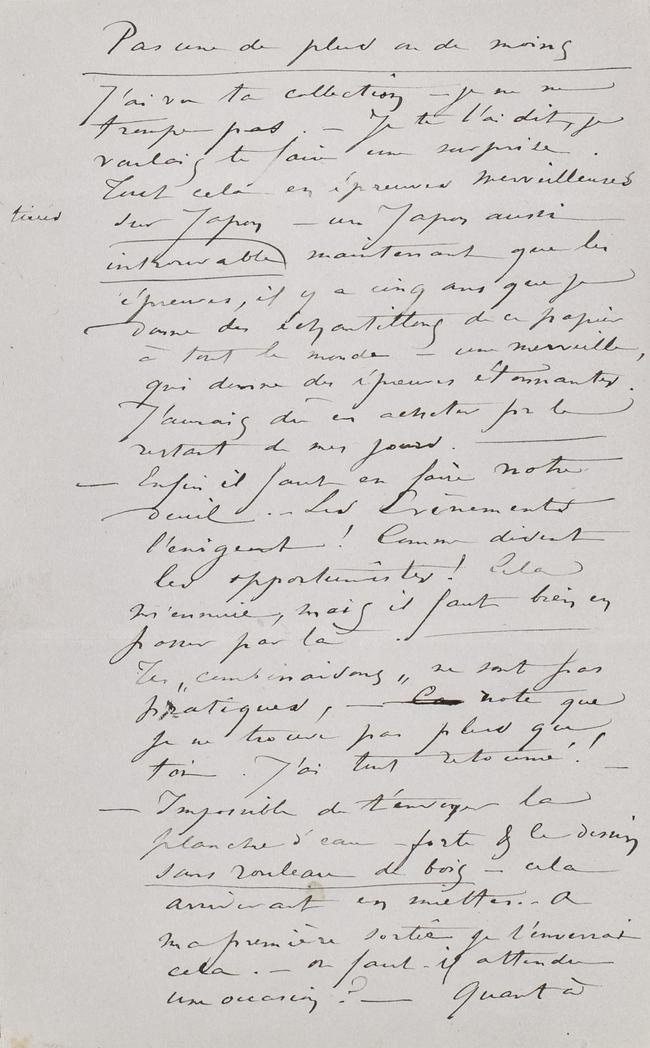 Pas une de plus ou de moins
J'ai vu ta collection – je ne me
trompe pas. – Je te l'ai dit, je
voulais te faire une surprise.
Tout cela en épreuves merveilleuses
tirées
sur Japon – un Japon aussi
introuvable maintenant que les
épreuves, il y a cinq ans que je
donne des échantillons de ce papier
à tout le monde – une merveille,
qui donne des épreuves étonnantes.
J'aurais dû en acheter pr le
restant de mes jours. —
— Enfin il faut en faire notre
deuil. – Les Evènements
l'exigent ! Comme disent
les opportunistes ! Cela
m'ennuie, mais il faut bien en
passer par là. —
Tes „combinaisons„ ne sont pas
pratiques, – note que
je ne trouve pas plus que
toi. J'ai tout retourné ! –
— Impossible de t'envoyer la
planche d'eau-forte & le dessin
sans rouleau de bois – cela
arriverait en miettes. – A
ma première sortie je t'enverrai
cela. – ou faut-il attendre
une occasion ? — Quant à